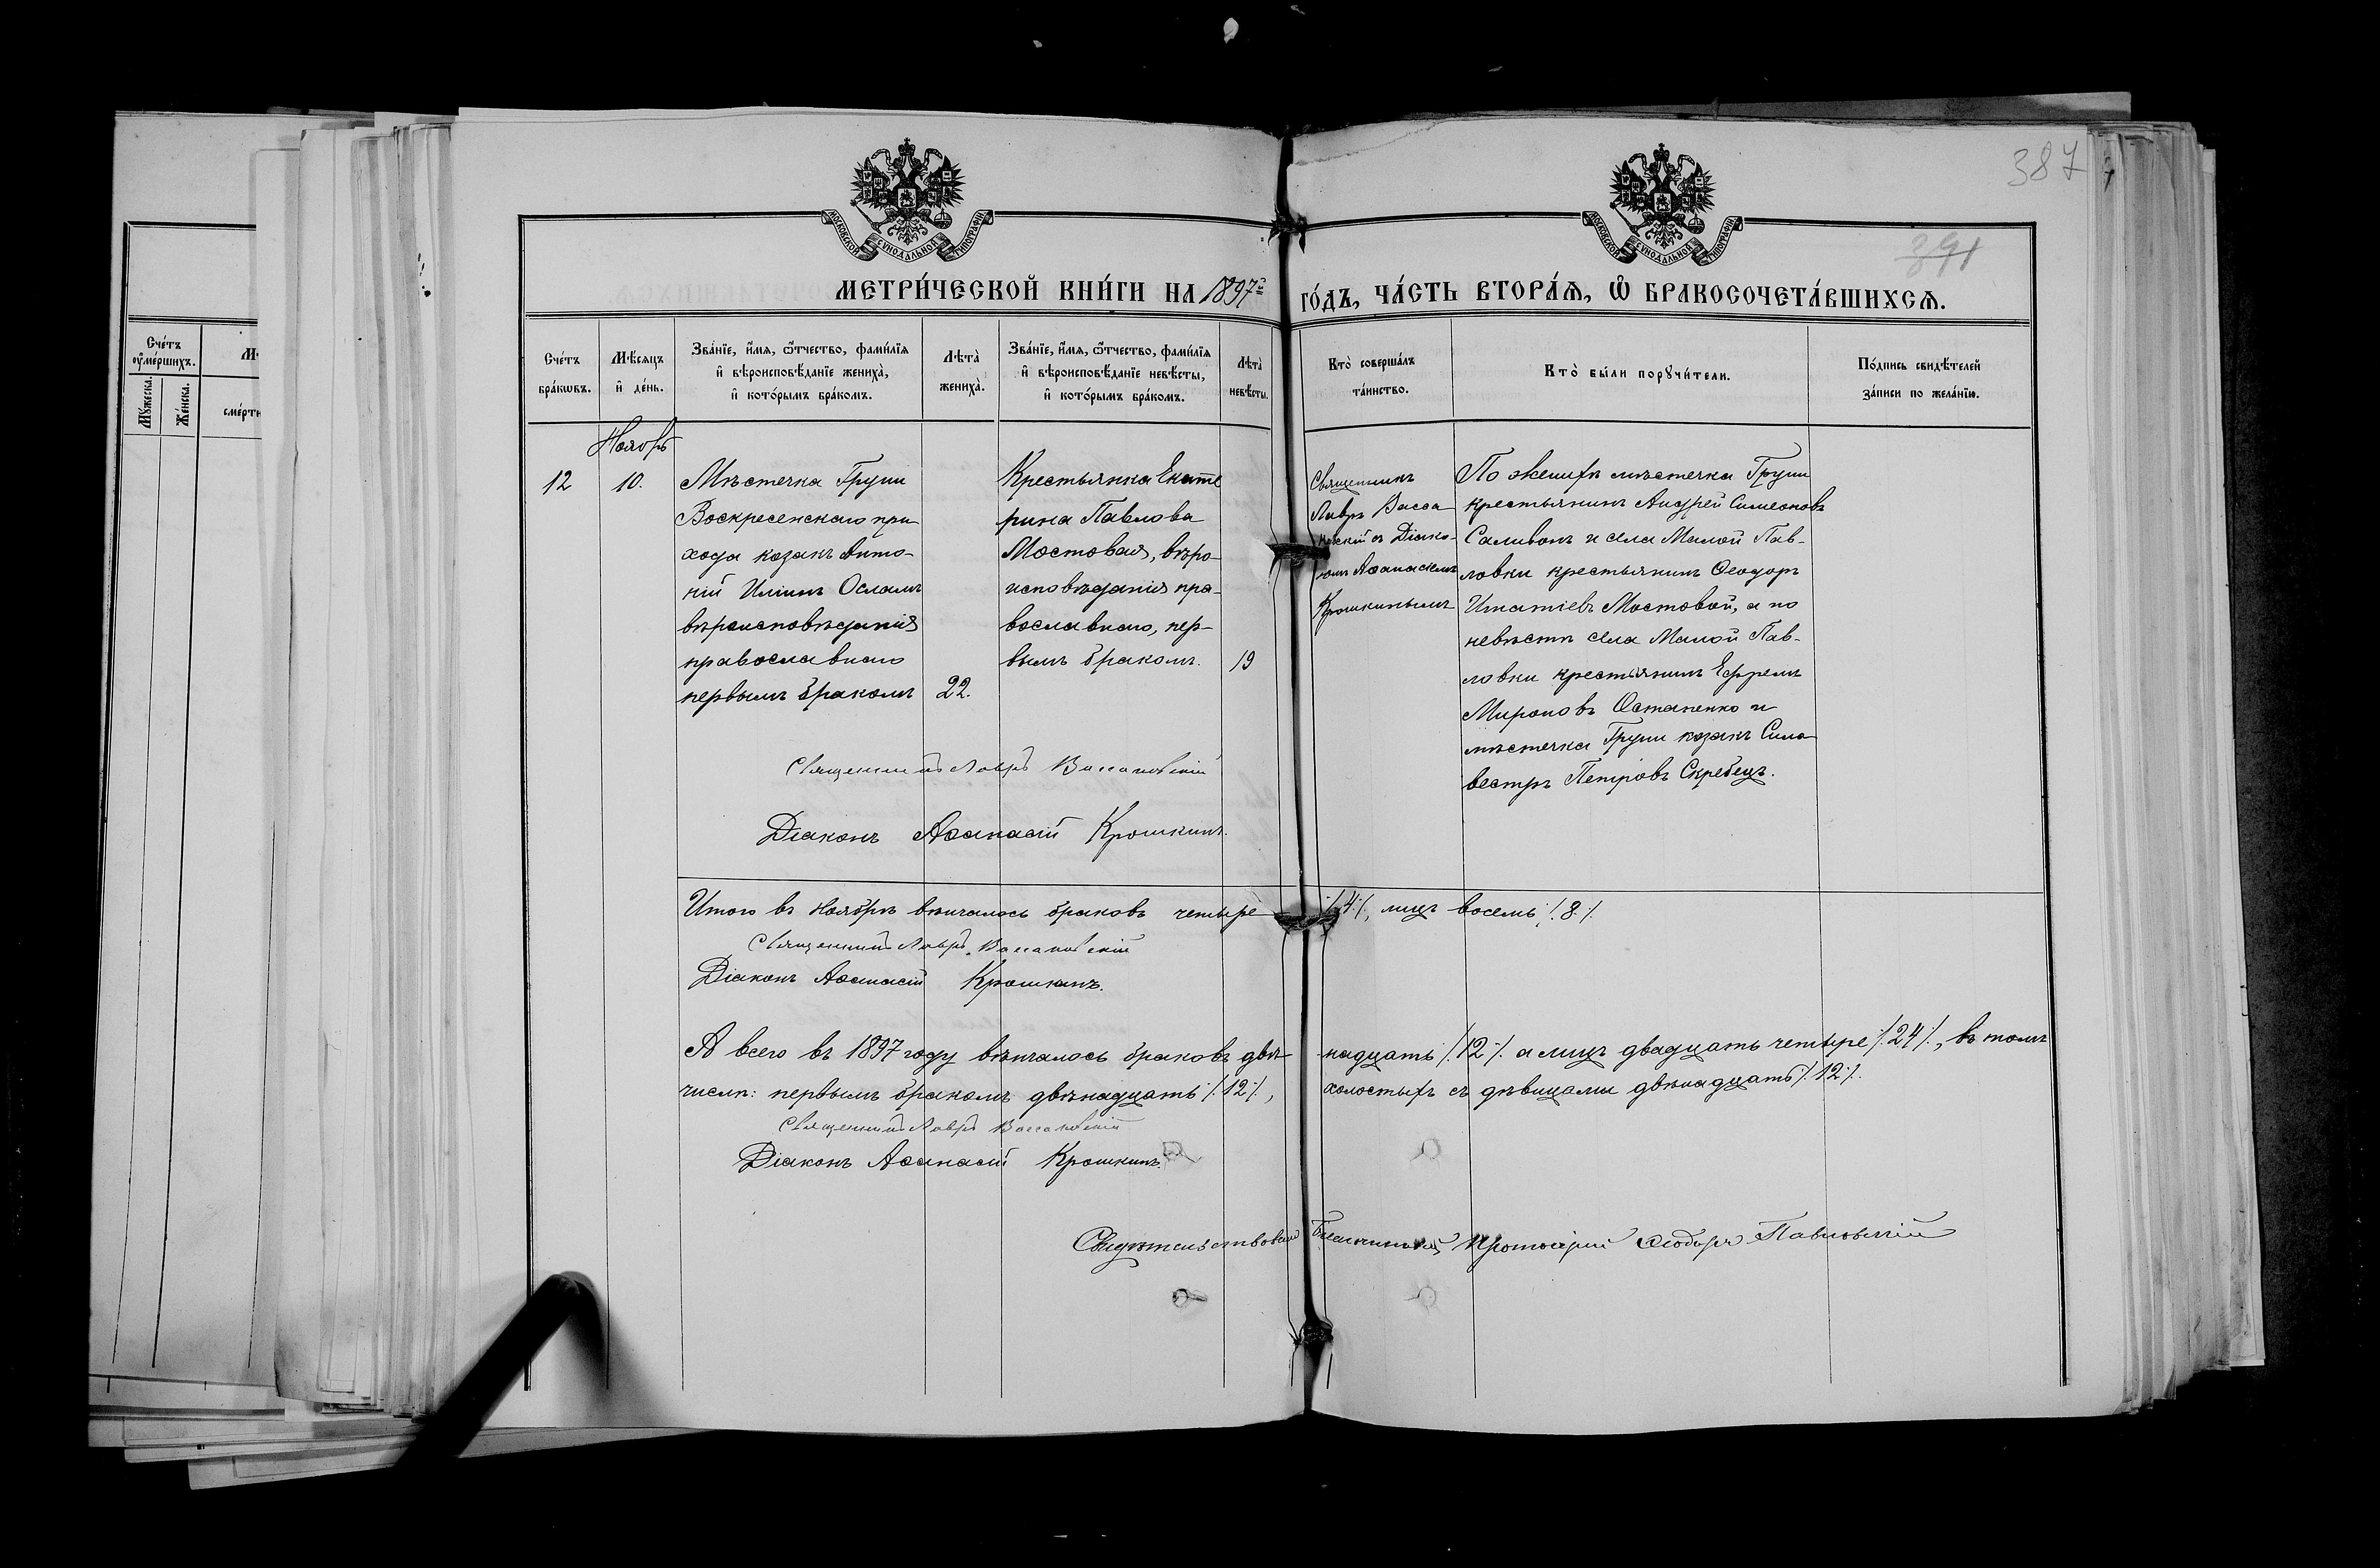 387
391
МЕТРИ́ЧЕСКОЙ КНИ́ГИ НА 1897й ГО́ДЪ, ЧА́СТЬ ВТОРА́Я, Ѿ БРАКОСОЧЕТА́ВШИХСЯ.
МОСКОВСКОЙ СУНОДАЛЬНОЙ ТИПОГРАФІИ
МОСКОВСКОЙ СУНОДАЛЬНОЙ ТИПОГРАФІИ
Сче́тъ
оумéршихъ.
Мꙋ́жеска.
Же́нска.
сме́рти
Сче́тъ
бра́кѡвъ.
Мѣ́сяцъ
и҆ де́нь.
Зва́нїе, и҆́мя, ѻ҆́тчество, фамі́лїя
и҆ вѣроисповѣ́данїе жениха̀,
и҆ кото́рымъ бра́комъ.
Лѣта̀
жениха̀.
Зва́нїе, и҆́мя, ѻ҆́тчество, фамі́лїя
и҆ вѣроисповѣ́данїе невѣ́сты,
и҆ кото́рымъ бра́комъ.
Лѣта̀
невѣ́сты.
Кто̀ соверша́лъ
та́инство.
Кто̀ бы́ли порꙋчи́тели.
По́дпись свидѣ́телей
за́писи по жела́нїю.
Ноябрь
12
10.
Мѣстечка Груни
Воскресенскаго при
хода козакъ Анто-
ній Иліинъ Осламъ
вѣроисповѣданія
православнаго
первымъ бракомъ
22.
Крестьянка Екате
рина Павлова
Мостовая, вѣро-
исповѣданія пра-
вославнаго, пер-
вымъ бракомъ.
19
Священникъ
Лавръ Васса
ковскій съ Діако-
номъ Аѳанасіемъ
Крошкинымъ
По женихѣ мѣстечка Груни
крестьянинъ Андрей Симеоновъ
Саливонъ и села Малой Пав-
ловки крестьянинъ Ѳеодоръ
Игнатіевъ Мостовой, а по
невѣстѣ села Малой Пав-
ловки крестьянинъ Ефремъ
Мироновъ Остапенко и
мѣстечка Груни козакъ Силь
вестръ Петровъ Скребецъ.
Священникъ Лавръ Вассаковскій
Діаконъ Аѳанасій Крошкинъ.
Итого въ ноябрѣ вѣнчалось браковъ четыре /.4./, лицъ восемь /.8./.
Священникъ Лавръ Вассаковскій
Діаконъ Аѳанасій Крошкинъ.
А всего въ 1897 году вѣнчалось браковъ двѣ- надцать /.12./. а лицъ двадцать четыре /.24./, въ томъ
числѣ: первымъ бракомъ двѣнадцать /.12./, холостыхъ съ дѣвицами двѣнадцать /.12./.
Священникъ Лавръ Вассаковскій
Діаконъ Аѳанасій Крошкинъ.
Свидѣтельствовалъ Благочинный, Протоіерей Ѳеодоръ Павловскій